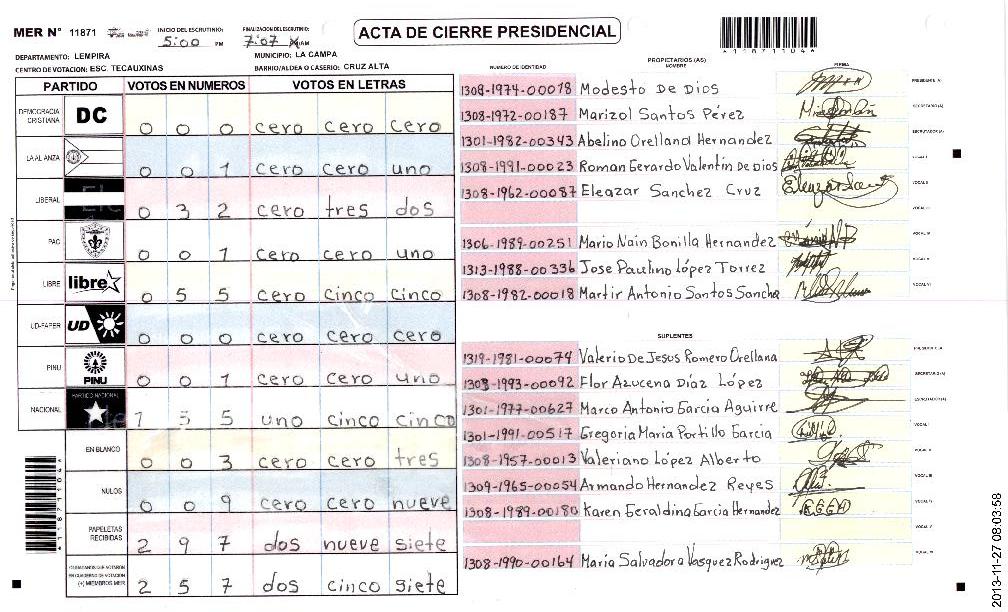 MER N° 11871 INICIO DEL ESCRUTINIO: 5:00 PM FINALIZACION DEL ESCRUTINIO: 7:07 AM
ACTA DE CIERRE PRESIDENCIAL
11871104
DEPARTAMENTO: LEMPIRA MUNICIPIO: LA CAMPA
CENTRO DE VOTACION: ESC. TECAUXINAS BARRIO/ALDEA O CASERIO: CRUZ ALTA
PARTIDO VOTOS EN NUMEROS VOTOS EN LETRAS
DEMOCRACIA CRISTIANA DC 0 0 0 cero cero cero
LA ALIANZA 0 0 1 cero cero uno
LIBERAL 0 3 2 cero tres dos
PAC 0 0 1 cero cero uno
LIBRE libre 0 5 5 cero cinco cinco
UD-FAPER UD 0 0 0 cero cero cero
PINU PINU 0 0 1 cero cero uno
NACIONAL PARTIDO NACIONAL 1 5 5 uno cinco cinco
EN BLANCO 0 0 3 cero cero tres
NULOS 0 0 9 cero cero nueve
PAPELETAS RECIBIDAS 2 9 7 dos nueve siete
CIUDADANOS QUE VOTARON EN CUADERNO DE VOTACION (+) MIEMBROS MER 2 5 7 dos cinco siete
PROPIETARIOS (AS)
NUMERO DE IDENTIDAD NOMBRE FIRMA
1308-1974-00018 Modesto De Dios PRESIDENTE (A)
1308-1972-00187 Marizol Santos Pérez SECRETARIO (A)
1301-1982-00343 Abelino Orellana Hernandez ESCRUTADOR (A)
1308-1991-00023 Roman Gerardo Valentín De Dios VOCAL I
1308-1962-00087 Eleazar Sanchez Cruz VOCAL II
VOCAL III
1306-1989-00251 Mario Nain Bonilla Hernandez VOCAL IV
1313-1988-00336 Jose Paulino López Torrez VOCAL V
1308-1982-00018 Martir Antonio Santos Sancha VOCAL VI
SUPLENTES
1319-1981-00074 Valerio De Jesus Romero Orellana PRESIDENTE (A)
1308-1993-00092 Flor Azucena Díaz López SECRETARIO (A)
1301-1977-00627 Marco Antonio Garcia Aguirre ESCRUTADOR (A)
1301-1991-00517 Gregoria Maria Portillo Garcia VOCAL I
1308-1957-00013 Valeriano López Alberto VOCAL II
1309-1965-00054 Armando Hernandez Reyes VOCAL III
1308-1989-00180 Karen Geraldina Garcia Hernandez VOCAL IV
VOCAL V
1308-1990-00164 María Salvadora Vásquez Rodriguez VOCAL VI
2013-11-27 08:03:58